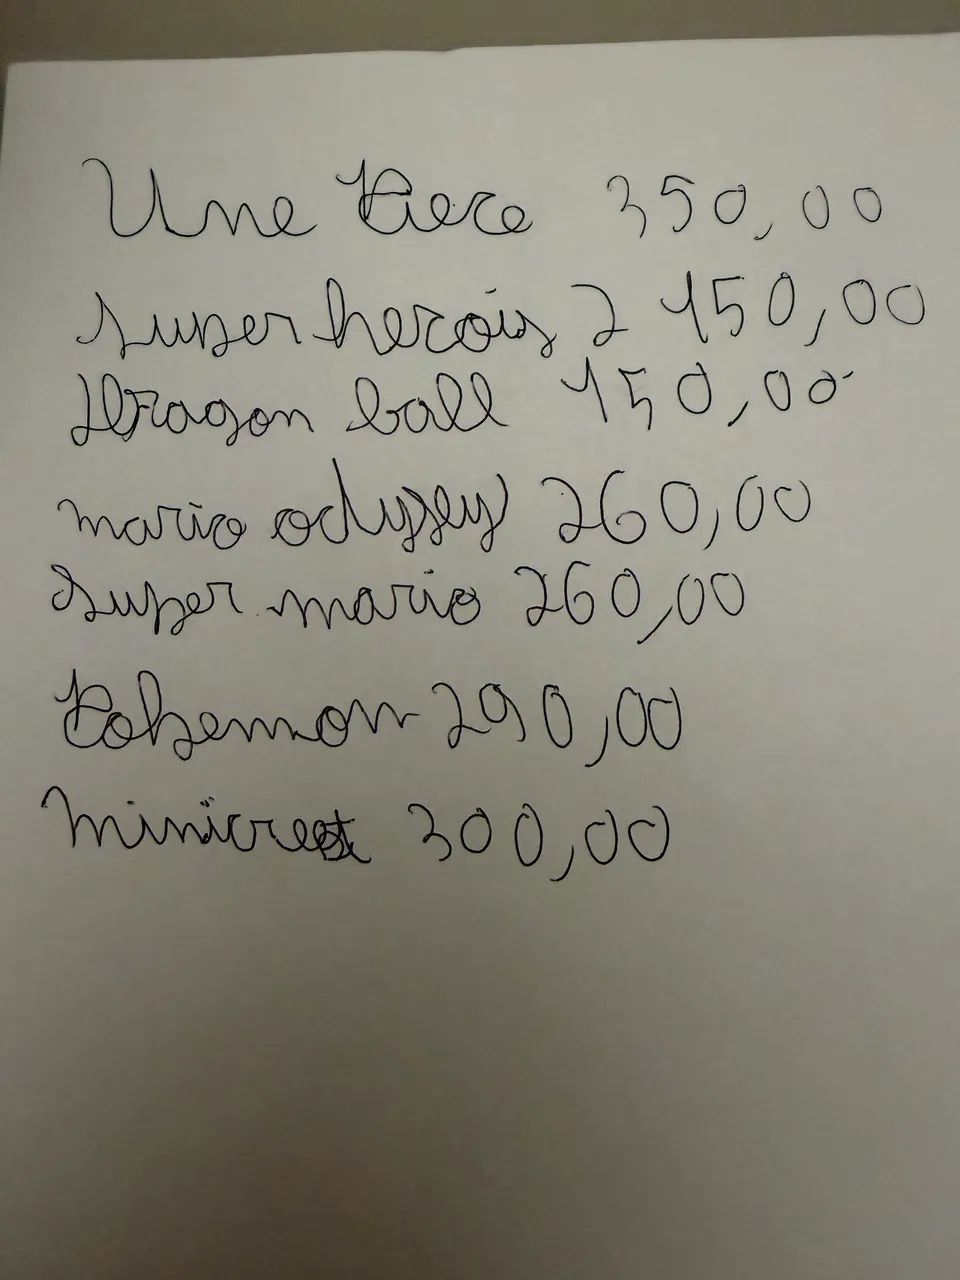 Une Piece 350,00
super heróis 2 150,00
Dragon ball 150,00
mario odyssey 260,00
super mario 260,00
Pokemon 290,00
Minicreft 300,00